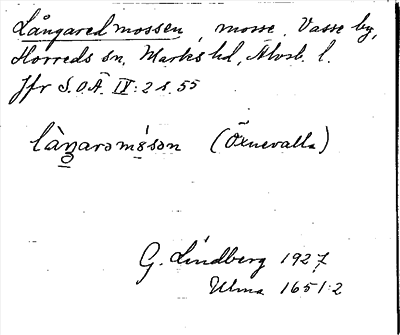 Långaredmossen, mosse, Vasse by,
Horreds sn, Marks hd, Älvsb. l.
Jfr S.O.Ä. IV:2 s. 55
làŋarəmǿsən (Öxnevalla)
G. Lindberg 1927
Ulma 1651:2